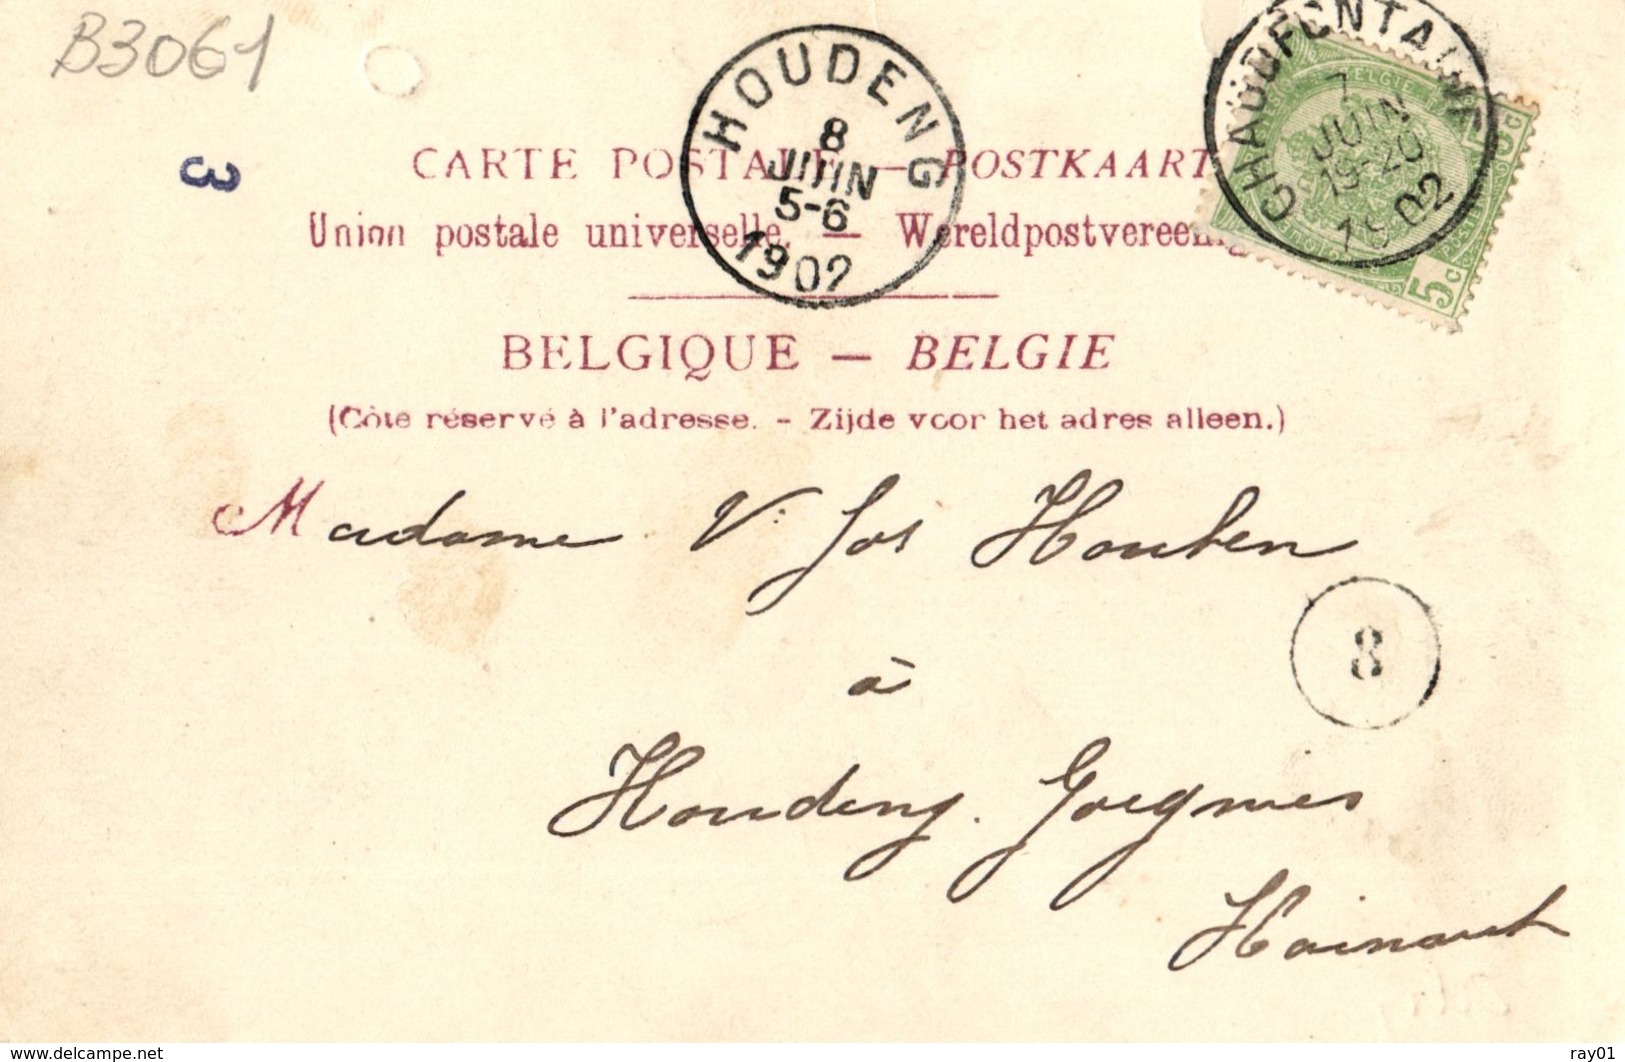 B3061
HOUDENG
8
JUIN
5-6
1902
CHAUDFONTAINE
7
JUIN
19-20
1902
5c
3
CARTE POSTALE — POSTKAART
Union postale universelle. — Wereldpostvereenig
BELGIQUE — BELGIE
(Côte réservé à l'adresse. - Zijde voor het adres alleen.)
Madame V: Jos Houben
à
8
Houdeng. Goegnies
Hainaut
www.delcampe.net
ray01